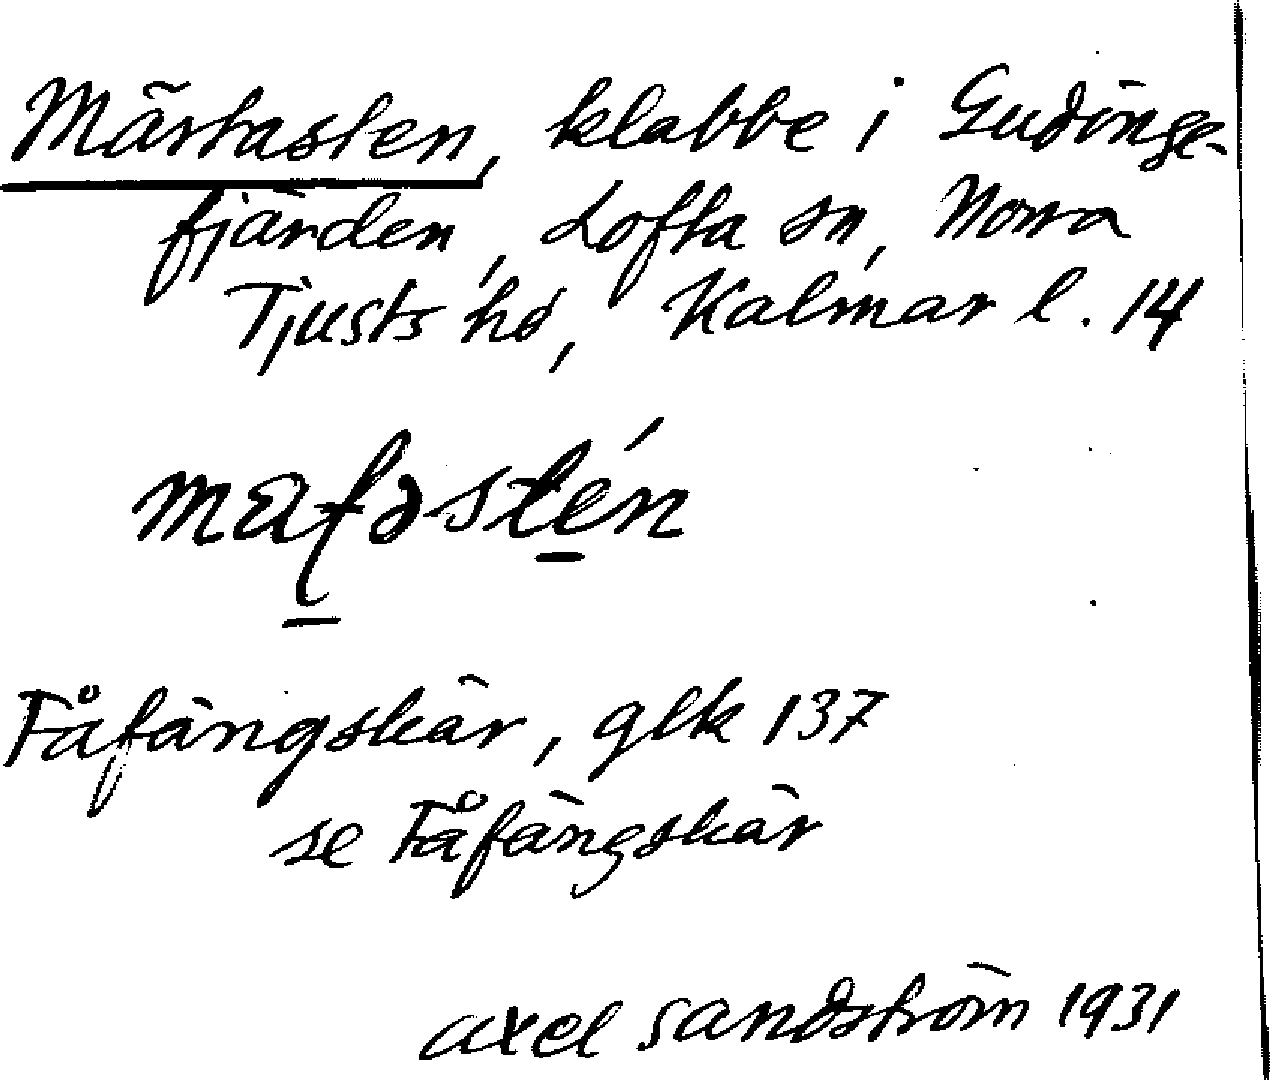 Märtasten, klabbe i Gudinge-
fjärden, Lofta sn, Norra
Tjusts hd, Kalmar l. 14
Fåfängskär, glk 137
se Fåfängskär
Axel Sandström 1931